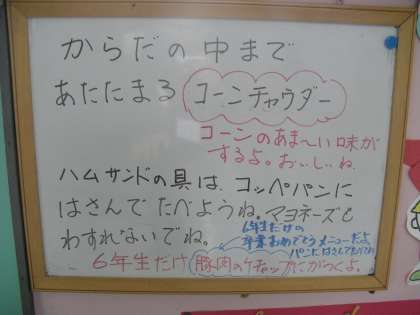 からだの中まで
あたたまる コーンチャウダー
コーンのあま〜い味が
するよ。おいしいね
ハムサンドの具は、コッペパンに
はさんで たべようね。マヨネーズも
わすれないでね。
6年生だけの
卒業おめでとうメニューだよ
パンにはさんでたべてね
6年生だけ 豚肉のケチャップに がつくよ。